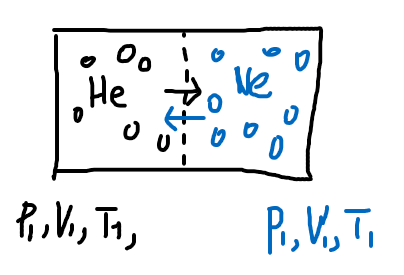 He Ne
P₁, V₁, T₁, P₁, V₁, T₁